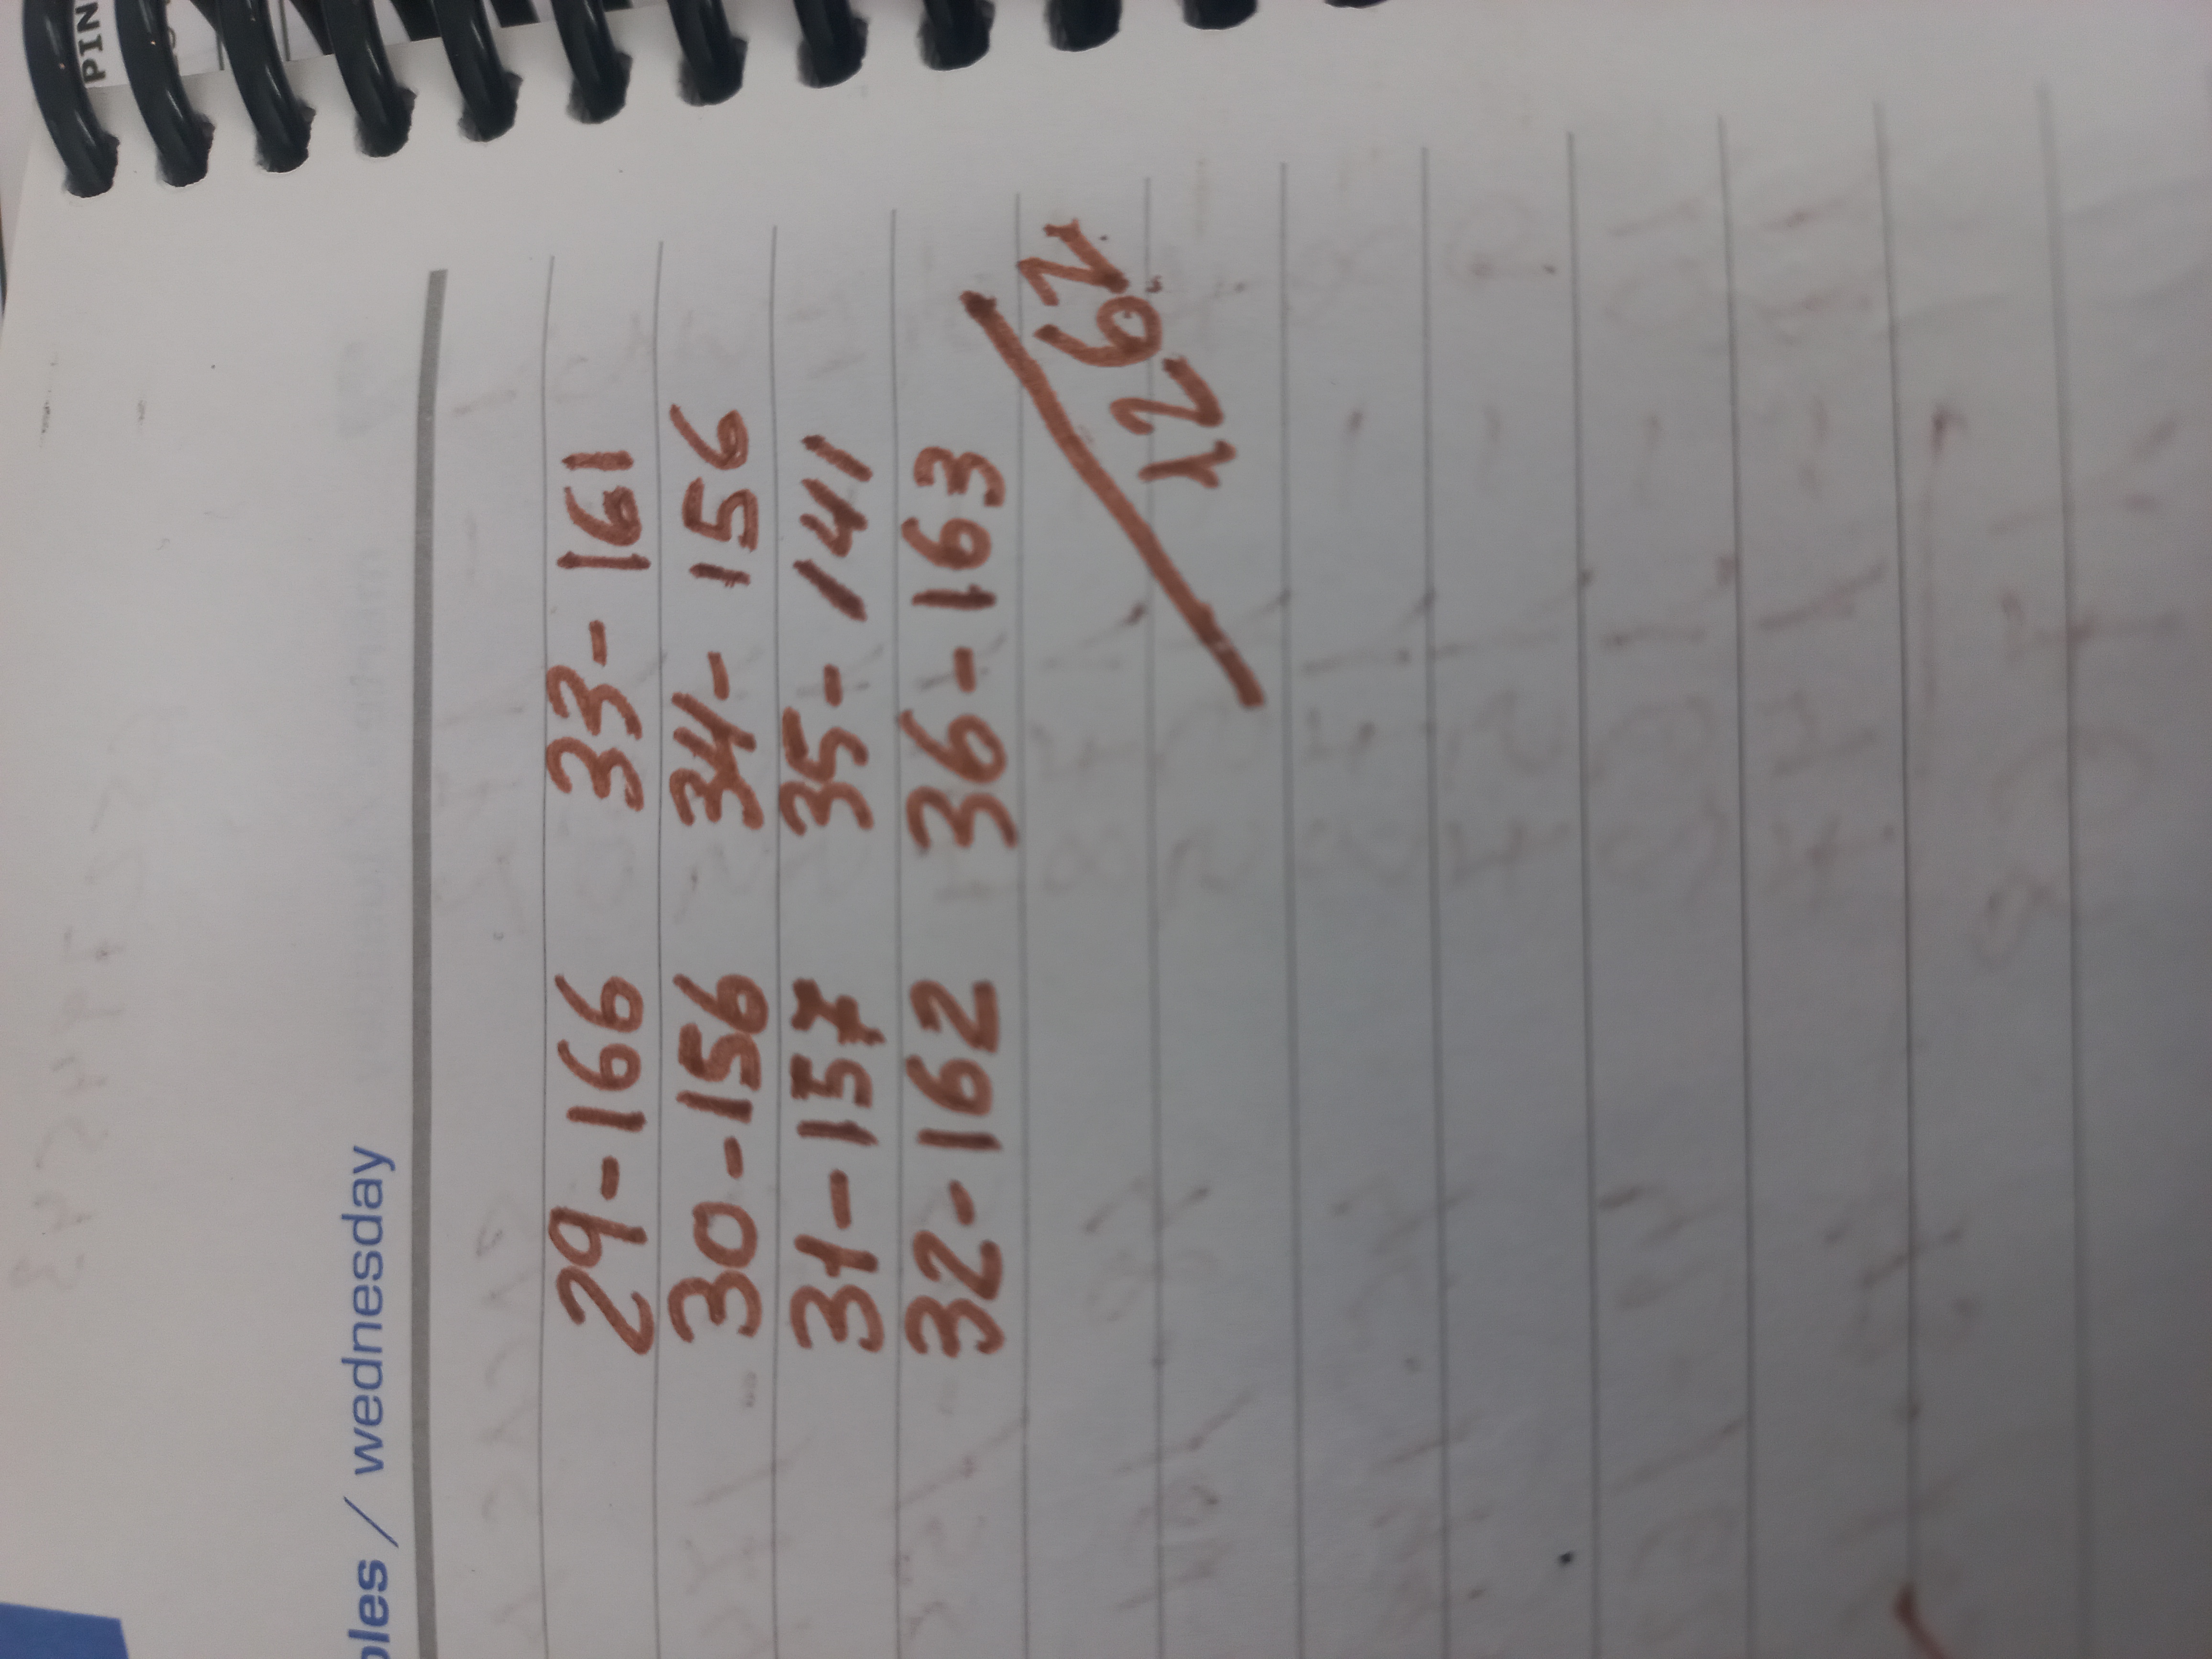 PIN
oles / wednesday
29-166 33-161
30-156 34-156
31-157 35-141
32-162 36-163
1262